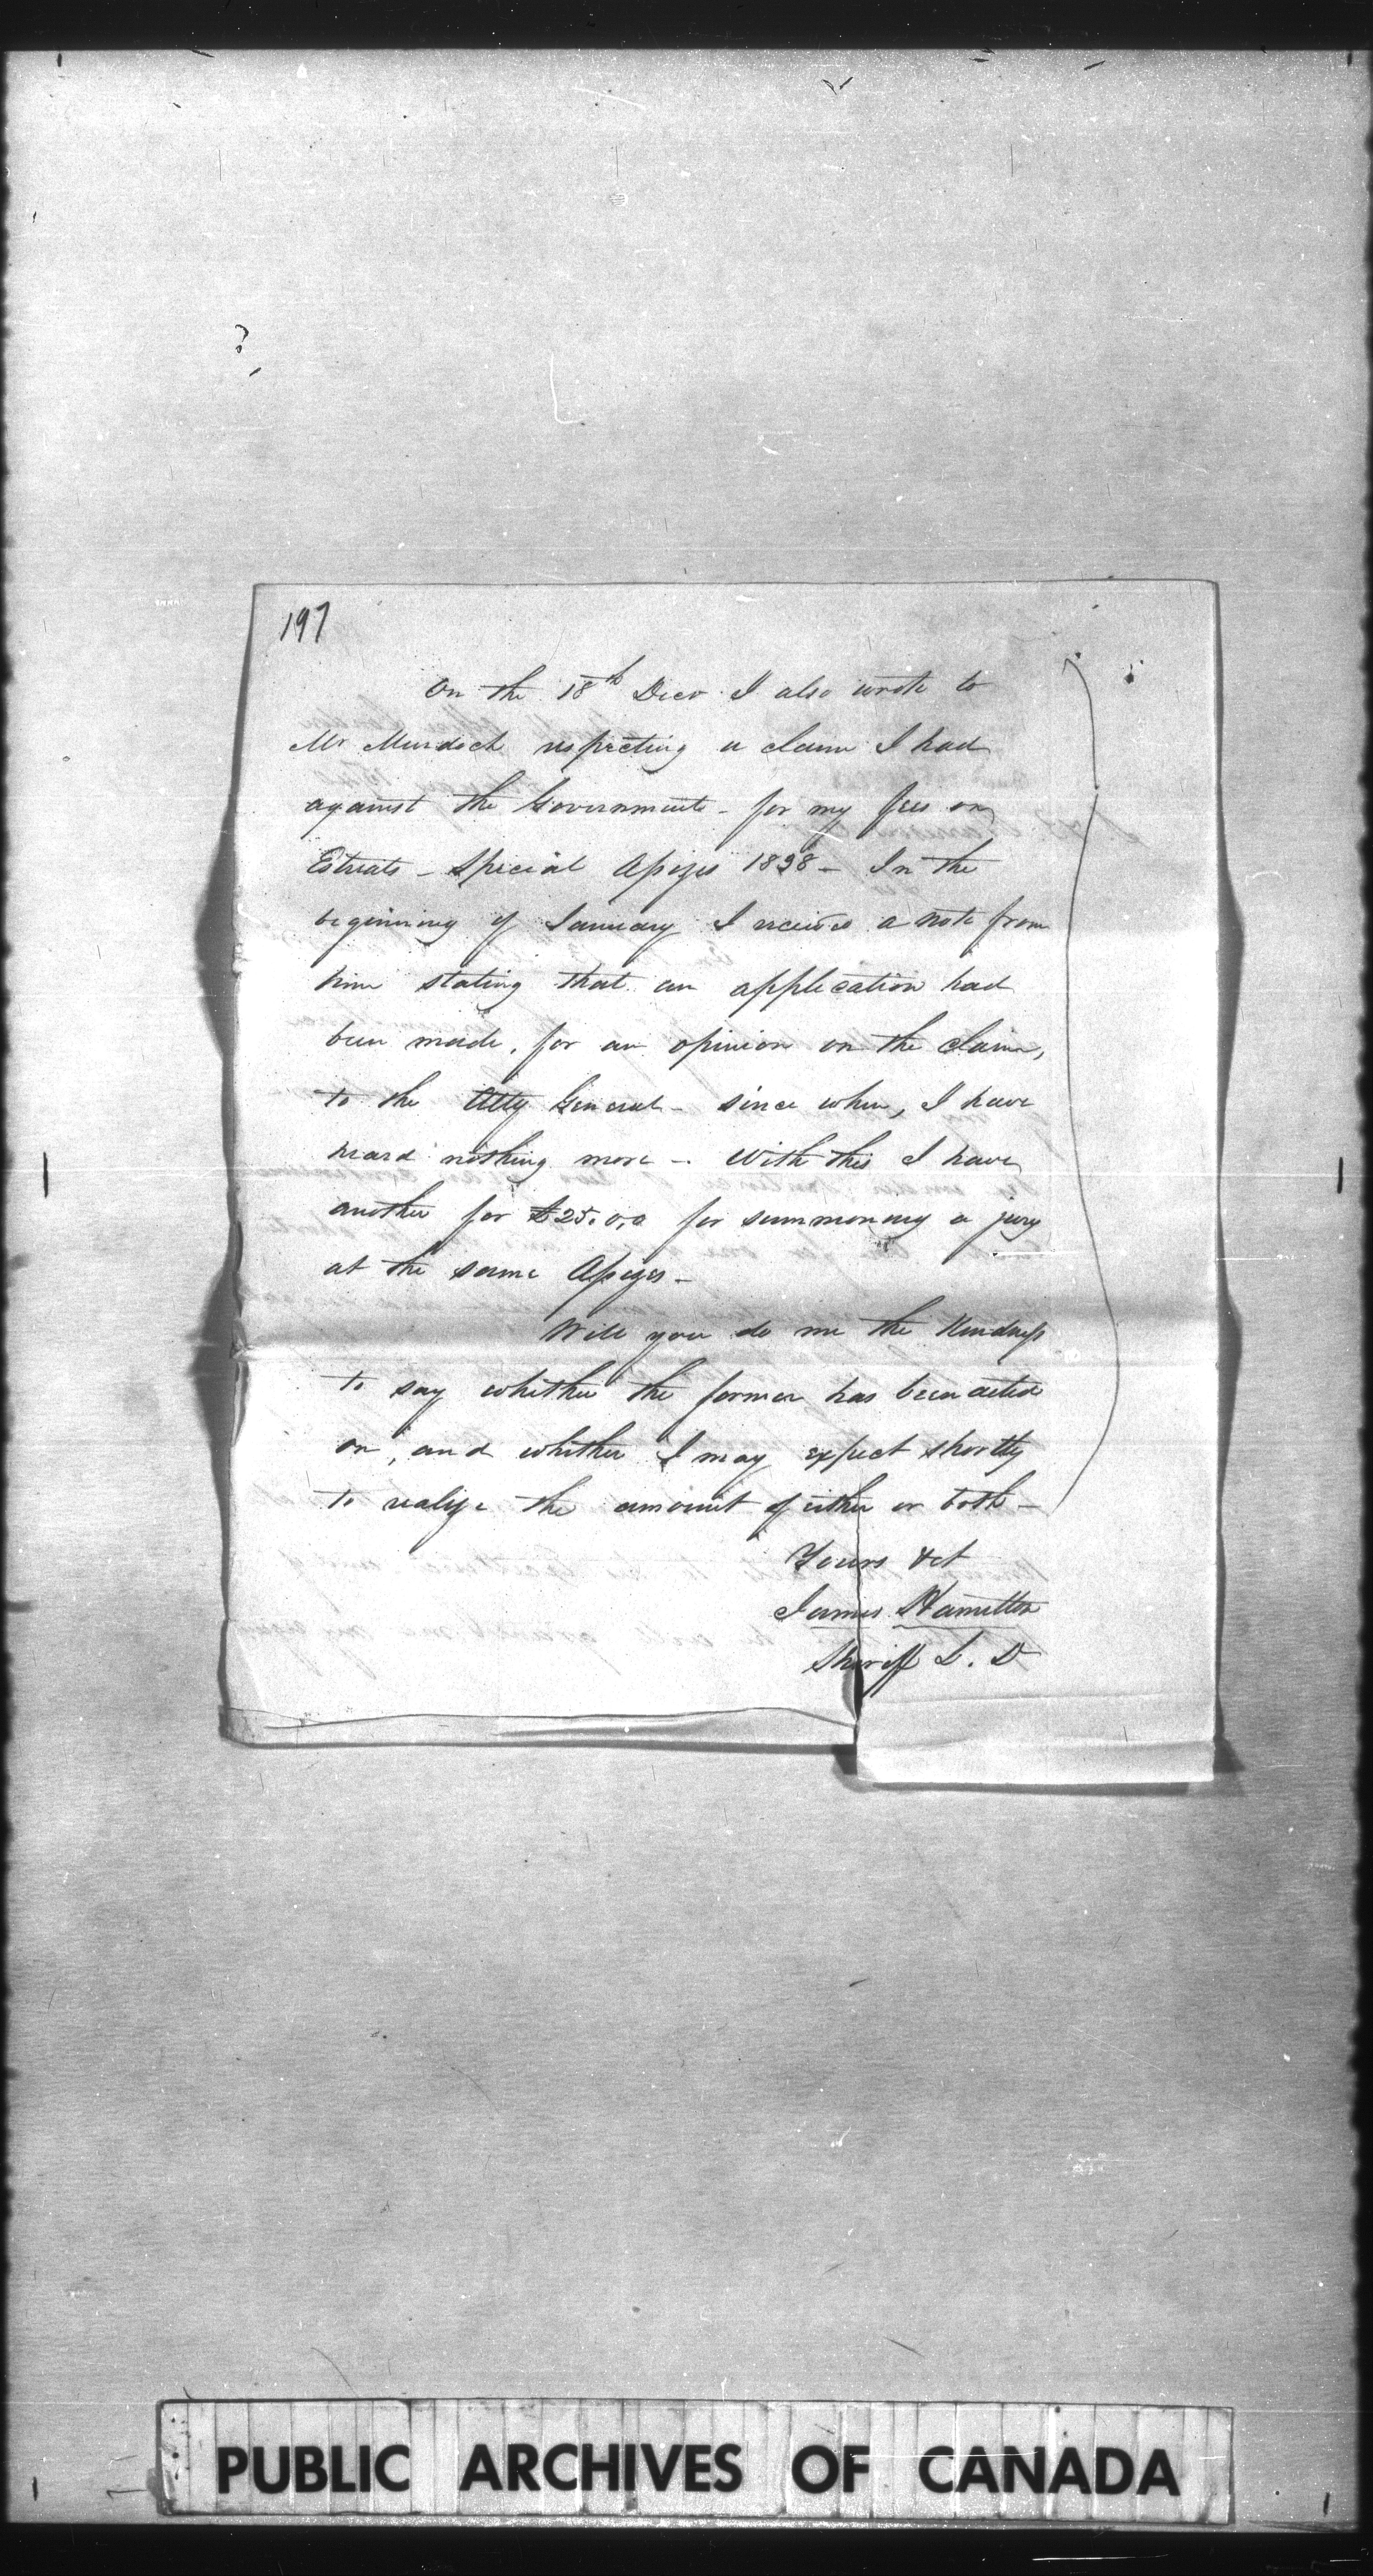 197
On the 18th Decr I also wrote to
Mr Murdoch respecting a claim I had
against the Government - for my fees on
Estreats - Special Assizes 1838 - In the
beginning of January I received a note from
him stating that an application had
been made, for an opinion on the claim,
to the Atty General - since when, I have
heard nothing more - With this I have
another for £25.0.0 for summoning a jury
at the same Assizes -
Will you do me the kindness
to say whether the former has been acted
on, and whether I may expect shortly
to realize the amount of either or both -
Yours &ct
James Hamilton
Sheriff L. D
PUBLIC ARCHIVES OF CANADA